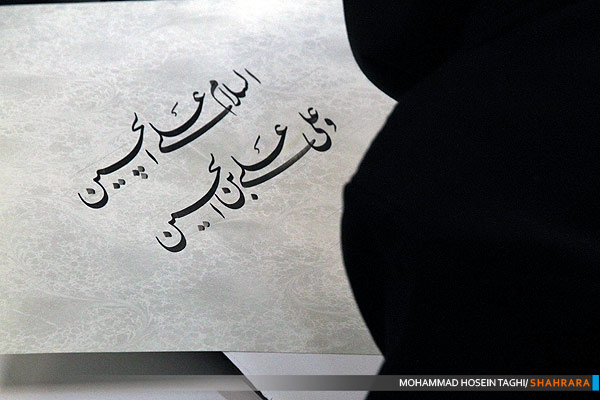 السلام علی الحسین
و علی علی بن الحسین
MOHAMMAD HOSEIN TAGHI/SHAHRARA